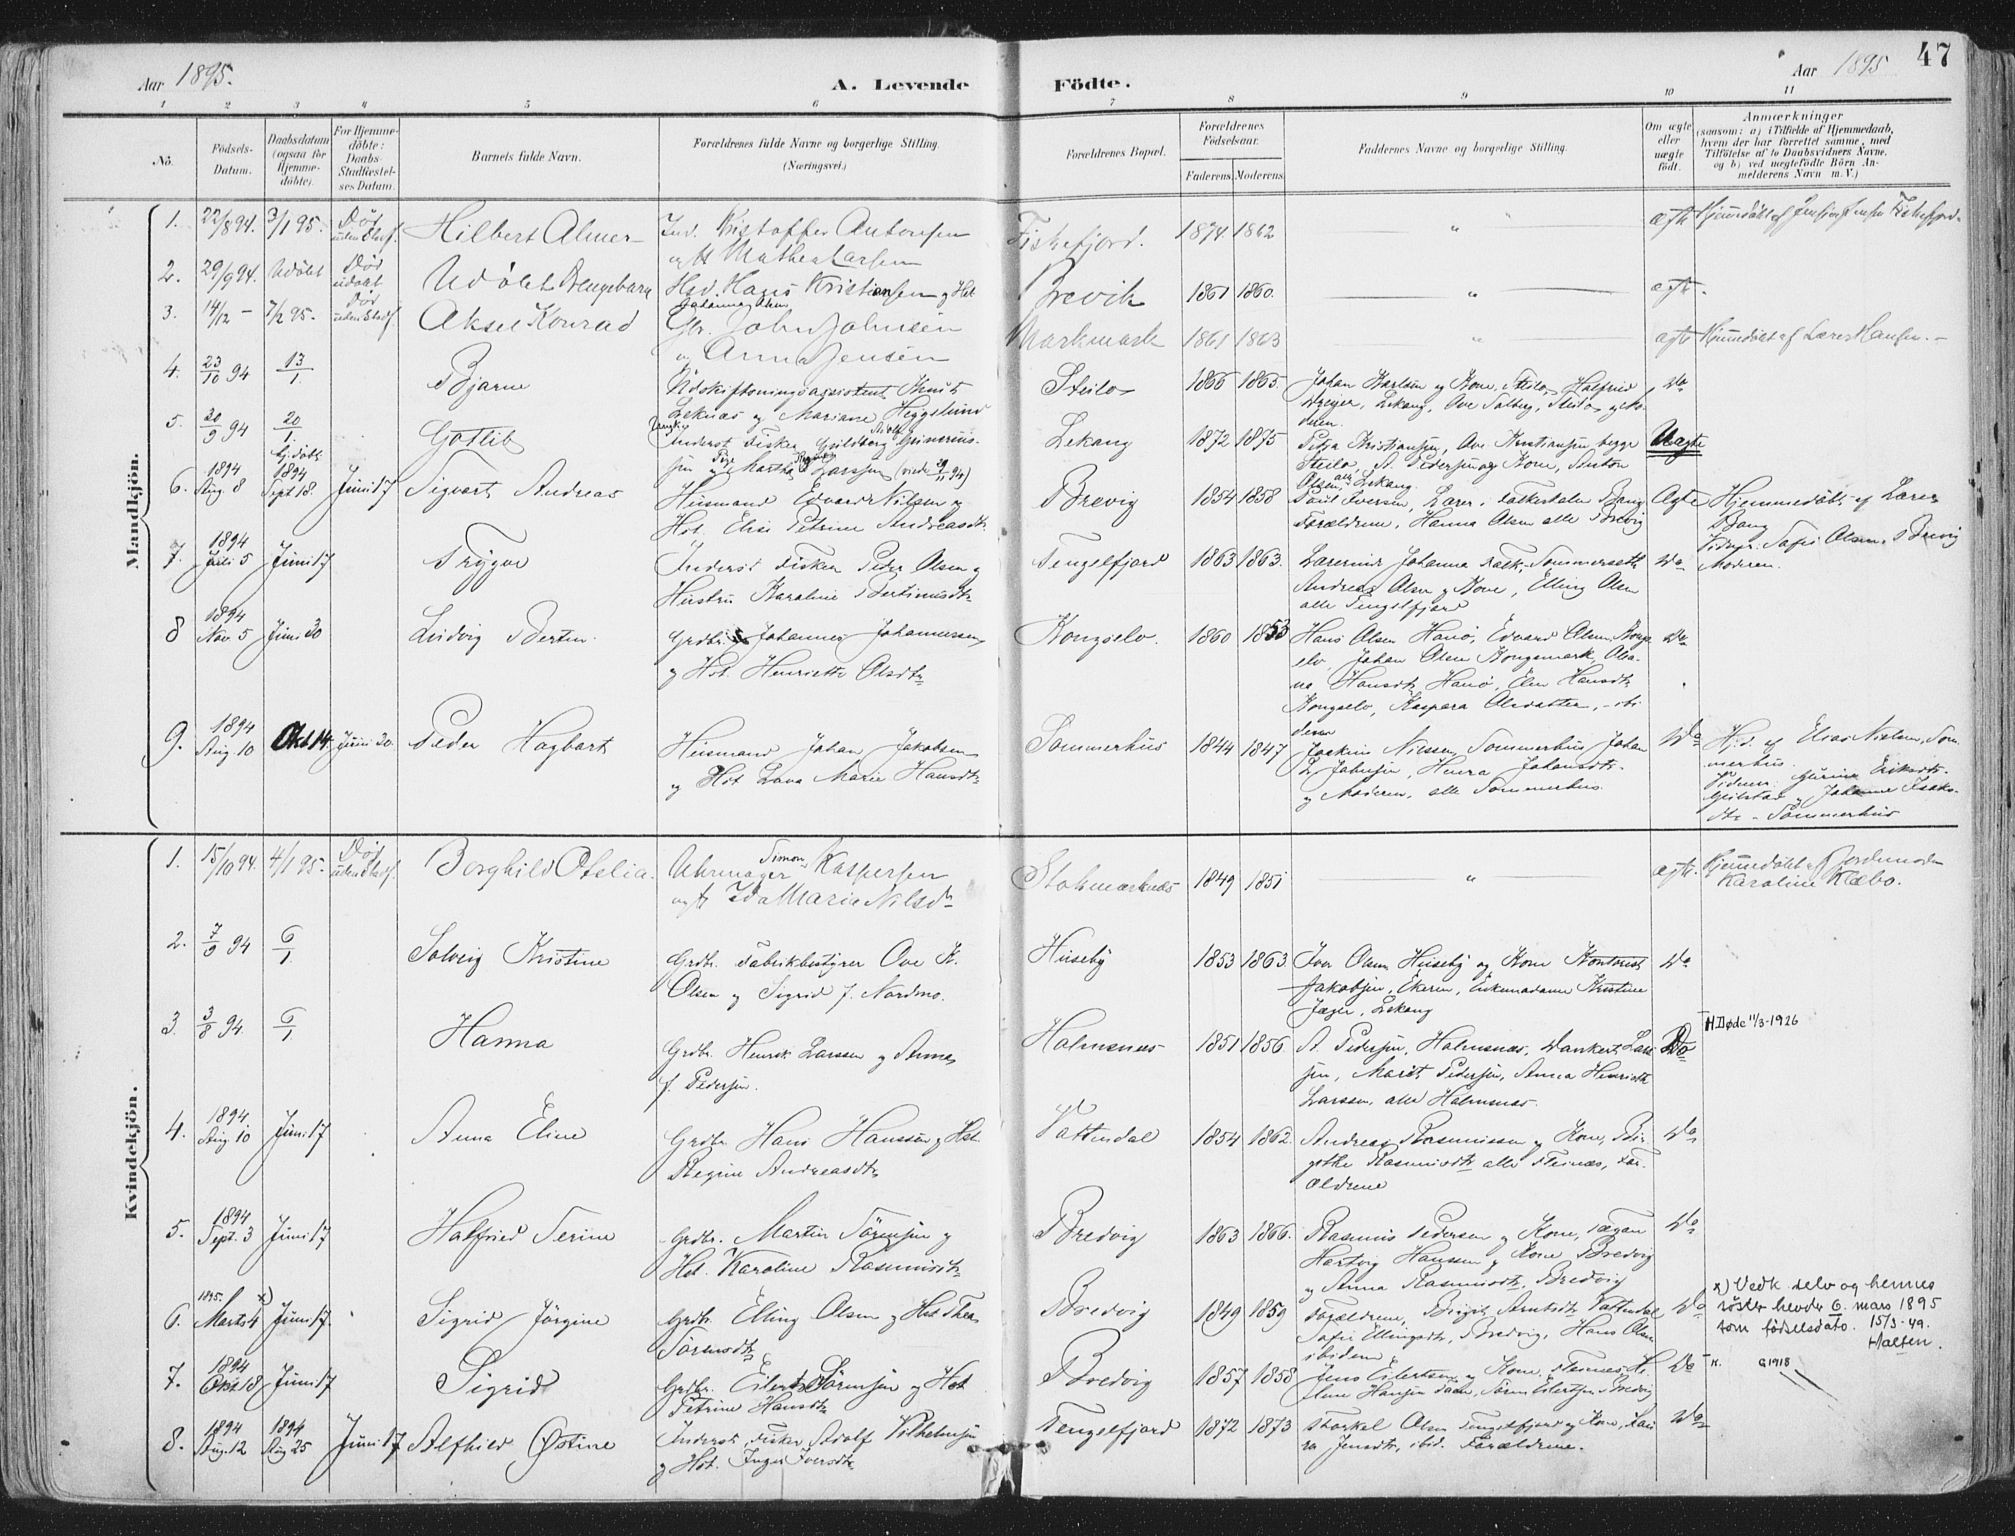 47
Aar 1895.
A. Levende
Födte.
Aar 1895
1 2 3 4 5 6 7 8 9 10 11
No.
Födsels-
Datum.
Daabsdatum
(ogsaa for
Hjemme-
döbte).
For Hjemme-
döbte:
Daabs-
Stadfæstel-
ses Datum.
Barnets fulde Navn.
Forældrenes fulde Navne og borgerlige Stilling.
(Næringsvei.)
Forældrenes Bopæl.
Forældrenes
Födselsaar.
Faderens. Moderens.
Faddernes Navne og borgerlig Stilling.
Om ægte
eller
uægte
födt.
Anmærkninger
(saasom: a) i Tilfælde af Hjemmedaab,
hvem der har forrettet samme, med
Tilföielse af to Daabsvidners Navne,
og b) ved uegtefödte Börn An-
melderens Navn m. V.)
Mandkjön.
1. 22/8 94. 3/1 95. Död uden Stadf. Hilbert Almer Ind. Kristoffer Antonsen
og H Mathea Larsen
Fiskefjord. 1874 1862 " ægte Hjemmedöbt af Jens Jensen Fiskefjord
2. 29/9 94. Udöbt Död udöbt Udöbt Drengebarn Hsd. Hans Kristiansen og Hst
Johanna Olsen
Brevik 1861 1860. " ægte.
3. 14/12 - 7/2 95. Död uden Stadf. Aksel Konrad Gbr. John Johnsen
og Anna Jensen
Markmark 1861 1863 " ægte Hjemmedöbt af Lærer Hansen. -
4. 23/10 94 13/1. Bjarne Udskiftningsassistent Knut
Leknæs og Mariane Heggelund
Steilo 1866 1865. Johan Karlsen og Kone, Steilo, Halfrid
Dreyer, Lekang, Ove Solberg, Steilo og Mo-
deren. Do
5. 20/9 94 20/1. Gotlib Inderst Fisker Guldberg Grimerius-
sen og Martha Larssen
Lekang 1872 1875 Petra Kristiansen, Ove Kristiansen begge
Steilo, A. Pedersen og Kone, Anton
Olsen, alle Lekang. Uægte
6. 1894 Aug. 8 hj. döbt 1894 Sept 18. Juni 17 Sigvart Andreas Husmand Edvard Nilsen og
Hst. Elise Petrine Andreasdtr.
Brevig 1854 1858 Paul Iversen, Lærer i Folkeskolen Bang
Forældrene, Hanna Olsen alle Brevig Ægte Hjemmedöbt af Lærer
Bang
Vidner. Sofie Olsen, Brevig
Moderen.
7. 1894 Juli 5 Juni 17 Trygve Inderst Fisker Peder Olsen og
Hustru Karoline Bertinusdtr
Tengelfjord 1863 1863. Lærerinde Johanna Falk, Sommerseth
Andreas Olsen og Kone, Elling Olsen
alle Tengelfjord Do
8 1894 Nov 5 Juni 30 Ludvig Bertin. Grdbr. Johannes Johannessen
og Hst. Henriette Olsdtr
Kongselv. 1860 1853 Hans Olsen Hanö, Edvard Olsen Kongs-
elv, Johan Olsen Kongsmark, Olea-
na Hansdtr Hanö, Elen Hansdtr
Kongselv, Kaspara Olsdatter, - ibi-
dem Do
9. 1894 Aug. 10 Okt 14. Juni 30. Peder Hagbart Husmand Johan Jakobsen
og Hst Lava Marie Hansdtr
Sommerhus 1844 1847 Joakim Nilssen, Sommerhus Johan
L. Johnsen, Hvera Johansdtr.
og Moderen, alle Sommerhus. Do Hjd. af Elias Nielsen, Som-
merhus.
Vidner: Gurine Eriksdtr.
og Johanne Isaks-
dtr - Sommerhus
Kvindekjön.
1. 15/10 94. 4/1 95. Död uden Stadf. Borghild Otelia. Uhrmager Simon Kaspersen
og H Ida Marie Nilsdr
Stokmarknæs 1849 1851 " ægte. Hjemmedöbt af Jordemoder
Karoline Klæbo.
2. 7/9 94 6/1. Solveig Kristine Grdbr. Fabrikbestyrer Ove K.
Olsen og Sigrid f. Nordmo.
Huseby 1853 1863. Iver Olsen Huseby og Kone Kontorist
Jakobsen, Ekeren, Enkemadame Kristine
Jæger, Lekang Do
3. 3/8 94 6/1 Hanna Grdbr. Henrik Larssen og Anna
f. Pedersen.
Holmsnæs 1851 1856 A. Pedersen, Holmsnæs, Dankert Lars-
sen, Marit Pedersen, Anna Henriette
Larssen, alle Holmsnæs. Do H. Døde 11/3-1926
4. 1894 Aug. 10 Juni 17 Anna Eline Grdbr. Hans Hanssen og Hst.
Regine Andreasdtr
Vattendal 1854 1862. Andreas Rasmussen og Kone, Bir-
gitte Rasmusdtr alle Steinæs, For-
ældrene Do
5. 1894 Sept. 3 Juni 17 Halfried Serine Grdbr. Martin Sörensen og
Hst. Karoline Rasmusdtr
Bredvig 1863 1866. Rasmus Pedersen og Kone,
Hartvig Hanssen og Kone Bredvig
og Anna Rasmusdtr, Bredvig Do
6. 1895. Marts 4 x) Juni 17 Sigrid Jörgine Grdbr. Elling Olsen og Hst Thea
Sörensdtr
Bredvig 1849 1859 Forældrene, Birgit Arntsdtr Vattendal
Sofie Ellingsdtr, Bredvig, Hans Olsen
ibidem Do x) Vedk selv og hennes
søster hevder 6. mars 1895
som fødselsdato. 15/3-49.
Halten.
7. 1894 Okt 18 Juni 17 Sigrid Grdbr. Eilert Sörensen og Hst
Petrine Hansdtr
Bredvig 1857 1858 Jens Eilertsen og Kone, Steinnes, H.
Eline Hansen, Sören Eilertsen Bredvig Do K. G 1918
8. 1894 Aug. 12 1894 Aug 25 Juni 17 Alfhild Østine Inderst Fisker Adolf Vilhelmsen
og Hst. Inger Iversdtr
Tengelfjord 1872 1873 Storkel Olsen Tengelfjord og Kone, Lau-
ra Jensdtr, ibid. Forældrene. Do